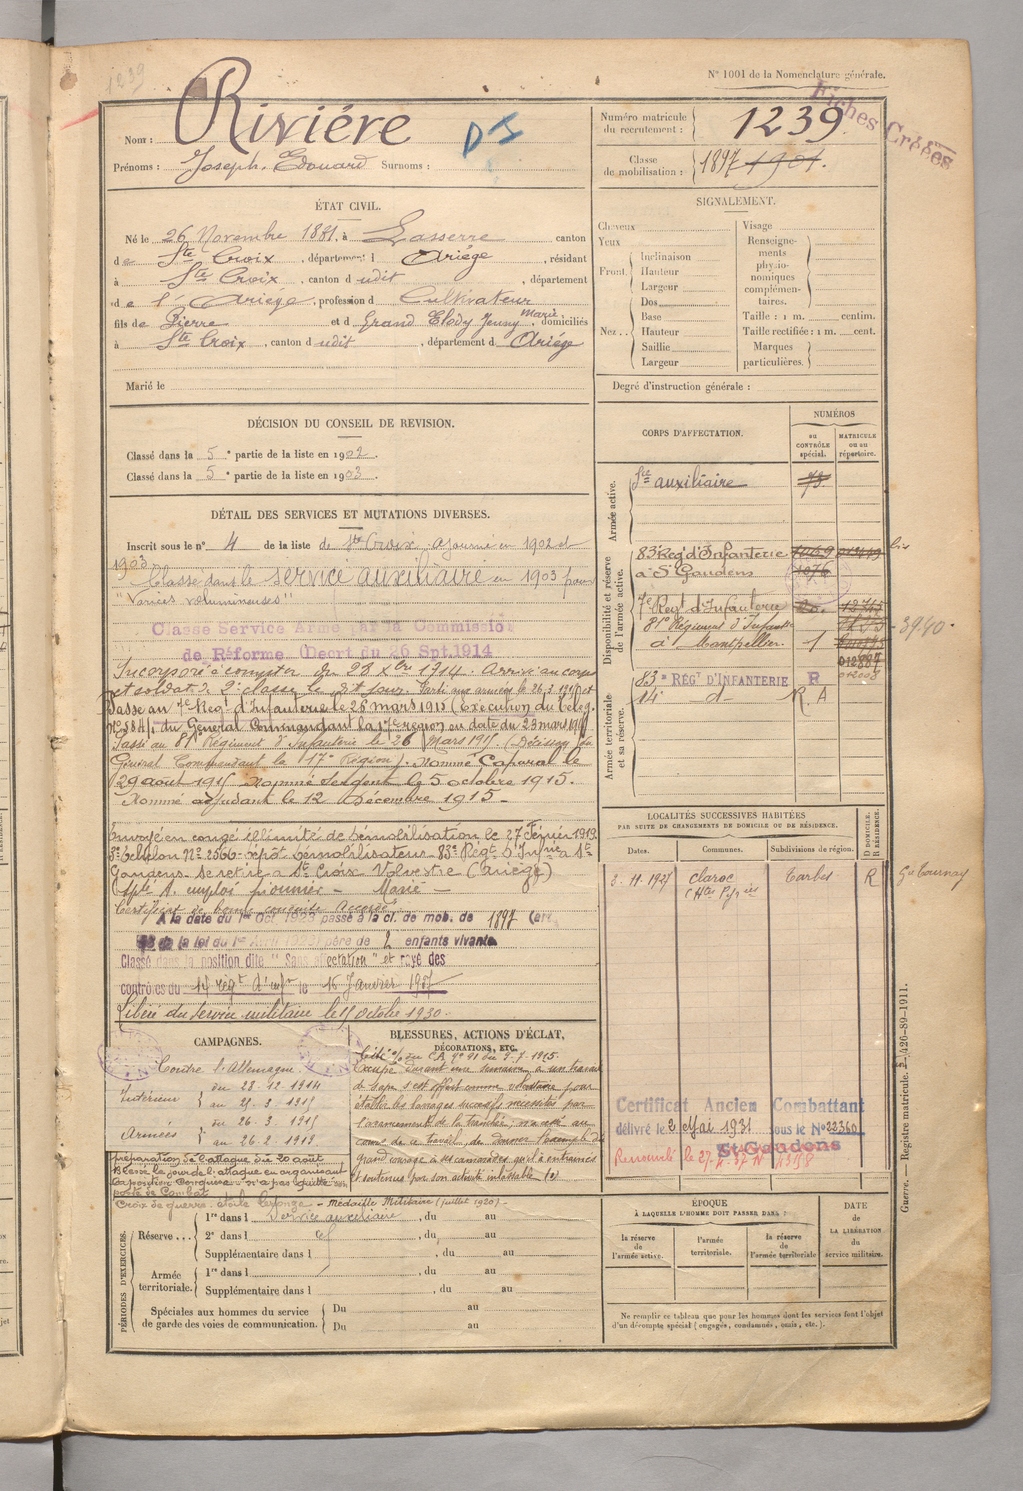 1239
N° 1001 de la Nomenclature générale.
Fiches Créées
Nom : Rivière
D I
Prénoms : Joseph, Edouard Surnoms :
Numéro matricule du recrutement : 1239.
Classe de mobilisation : 1897 1901.
ÉTAT CIVIL.
Né le 26 Novembre 1881, à Lasserre canton
de Ste Croix, département d Ariège, résidant
à Ste Croix, canton d udit, département
de l'Ariège, profession d Cultivateur
fils de Pierre et d Grand Elody Jenny Marie, domiciliés
à Ste Croix, canton d udit, département d Ariège
Marié le
SIGNALEMENT.
Cheveux
Yeux
Front.
Inclinaison
Hauteur
Largeur
Nez..
Dos
Base
Hauteur
Saillie
Largeur
Visage
Renseignements physionomiques complémentaires.
Taille : 1 m. centim.
Taille rectifiée : 1 m. cent.
Marques particulières.
Degré d'instruction générale :
DÉCISION DU CONSEIL DE REVISION.
Classé dans la 5e partie de la liste en 1902.
Classé dans la 5e partie de la liste en 1903.
DÉTAIL DES SERVICES ET MUTATIONS DIVERSES.
Inscrit sous le n° 4 de la liste de Ste Croix. Ajourné en 1902 et
1903
Classé dans le service auxiliaire en 1903 pour
"Varices volumineuses"
Classe Service Armé par la Commission
de Réforme (Decrt du 26 Spt. 1914
Incorporé à compter du 28 Xbre 1914. Arrivé au corps
et soldat de 2e classe le dit jour. Parti aux armées le 26.3.1915
Passé au 7e Regt d'Infanterie le 26 mars 1915 (Exécution du Teleg.
n° 5841 du Général Commandant la 17e région en date du 23 mars 1915
Passé au 81e Régiment d'Infanterie le 26 Mars 1915. (Décision du
Général Commandant la 17e Région). Nommé Caporal le
29 août 1915 Nommé sergent le 5 octobre 1915.
Nommé adjudant le 12 Décembre 1915
Envoyé en congé illimité de démobilisation le 27 Février 1919.
3e échelon n° 2566 dépôt démobilisateur 83e Régt d'Infrie à St
Gaudens. Se retire à Ste Croix Volvestre (Ariège)
Apte A. emploi pionnier - Marié -
Certificat de bonne conduite Accordé
A la date du 1er Oct. 1923 passé à la cl. de mob. de 1897 (art.
58 de la loi du 1er Avril 1923) père de 2 enfants vivants
Classé dans la position dite "Sans affectation" et rayé des
contrôles du 14e régt d'infie le 15 Janvier 1927
Libéré du service militaire le 15 octobre 1930.
CORPS D'AFFECTATION.
NUMÉROS
au CONTRÔLE spécial.
MATRICULE ou au répertoire.
Armée active.
Sce auxiliaire 73
Disponibilité et réserve de l'armée active.
83e Reg d'Infanterie
à St Gaudens 1076
7e Regt d'Infanterie
81e Régiment d'Infante
à Montpellier 1
3940
Armée territoriale et sa réserve.
83e RÉGT D'INFANTERIE R
14e d° R. A
LOCALITÉS SUCCESSIVES HABITÉES
PAR SUITE DE CHANGEMENTS DE DOMICILE OU DE RÉSIDENCE.
Dates. Communes. Subdivisions de région. D DOMICILE. R RÉSIDENCE.
3.11.1927 Clarac (Htes Pyrées Tarbes R Gie Tournay
Certificat Ancien Combattant
délivré le 2 Mai 1931 sous le N° 22360
St Gaudens
CAMPAGNES.
Contre l'Allemagne
Intérieur { du 28.12.1914
au 25.3.1915
Armées { du 26.3.1915
au 26.2.1919
BLESSURES, ACTIONS D'ÉCLAT, DÉCORATIONS, ETC.
Occupé durant une semaine à un travail
de sape s'est offert comme volontaire pour
établir les barrages successifs nécessités par
l'avancement de la tranchée, n'a cessé au
cours de ce travail, de donner l'exemple du
grand courage à ses camarades qu'il a entraînés
et soutenus par son activité inlassable
préparation de l'attaque du 20 août
Blessé le jour de l'attaque en organisant
la position conquise n'a pas quitté son
poste de Combat
Croix de guerre étoile bronze - Médaille Militaire (juillet 1920)
PÉRIODES D'EXERCICES.
Réserve ...
1re dans l service auxiliaire, du au
2e dans l d°, du au
Supplémentaire dans l , du au
Armée territoriale.
1re dans l , du au
Supplémentaire dans l , du au
Spéciales aux hommes du service de garde des voies de communication.
Du au
Du au
ÉPOQUE
À LAQUELLE L'HOMME DOIT PASSER DANS :
la réserve de l'armée active.
l'armée territoriale.
la réserve de l'armée territoriale
DATE de LA LIBÉRATION du service militaire.
Ne remplir ce tableau que pour les hommes dont les services font l'objet
d'un décompte spécial (engagés, condamnés, omis, etc.).
Guerre. — Registre matricule. 426-89-1911.